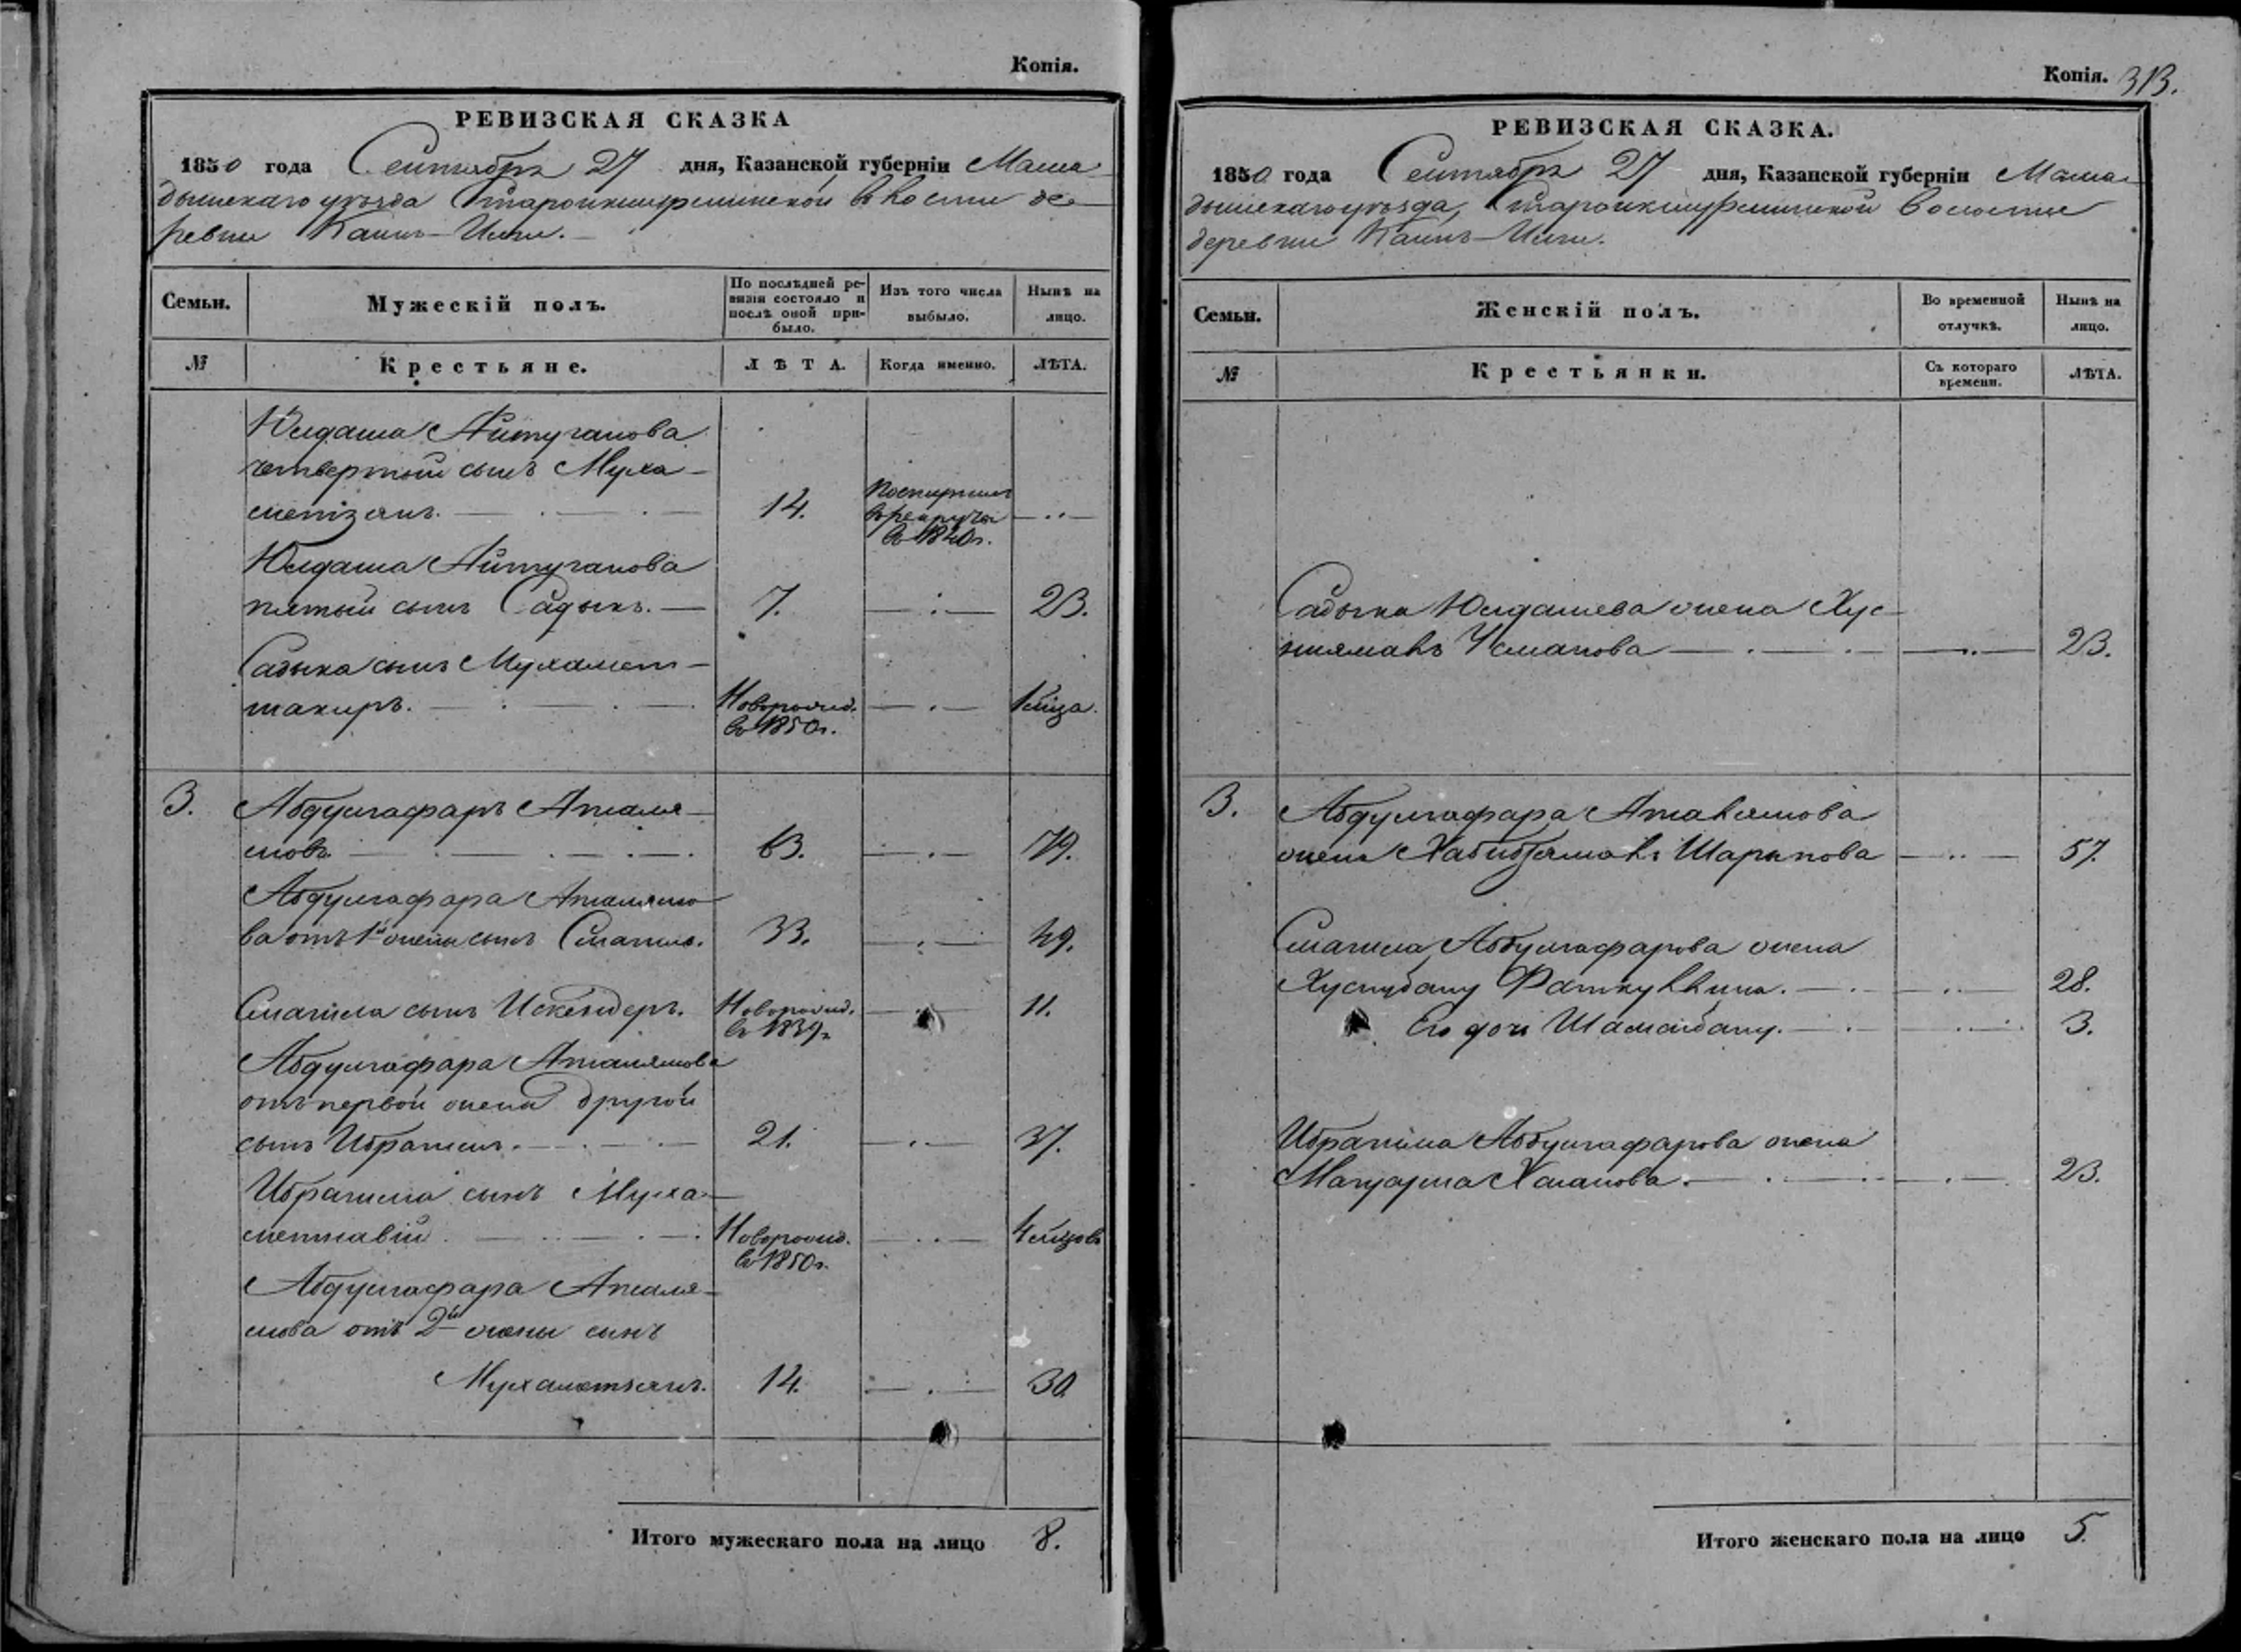 Копія.
РЕВИЗСКАЯ СКАЗКА
1850 года Сентября 27 дня, Казанской губерніи Мама-
дышскаго уѣзда Старокишметьевской волости де-
ревни Каинъ-Илги.
Семьи.
Мужескій полъ.
По послѣдней ре-
визіи состояло и
послѣ оной при-
было.
Изъ того числа
выбыло.
Нынѣ на
лицо.
№
Крестьяне.
ЛѢТА.
Когда именно.
ЛѢТА.
Юлдаша Айтуганова
четвертый сынъ Муха-
метзянъ. 14. Поступилъ
в рекруты
в 1840г.
Юлдаша Айтуганова
пятый сынъ Садыкъ. 7. 23.
Садыка сынъ Мухамет-
шакиръ. Новорожд. 1 мѣца.
в 1850г.
3. Абдулгафаръ Апталя-
мовъ 63. 79.
Абдулгафара Апталямо-
ва отъ 1й жены сынъ Смагилъ. 33. 49.
Смагила сынъ Искендеръ. Новорожд. 11.
в 1839г.
Абдулгафара Апталямова
отъ первой жены другой
сынъ Ибрагимъ. 21. 37.
Ибрагима сынъ Муха-
метшавій. Новорожд. 4 мѣцовъ
в 1850г.
Абдулгафара Апталя-
мова отъ 2й жены сынъ
Мухаметзянъ. 14. 30.
Итого мужескаго пола на лицо 8.
Копія. 313.
РЕВИЗСКАЯ СКАЗКА.
1850 года Сентября 27 дня, Казанской губерніи Мама-
дышскаго уѣзда, волости
деревни Каинъ-Илги.
Семьи.
Женскій полъ.
Во временной
отлучкѣ.
Нынѣ на
лицо.
№
Крестьянки.
Съ котораго
времени.
ЛѢТА.
Садыка Юлдашева жена Хус-
ниямалъ Усманова 23.
3. Абдулгафара Апталямова
жена Хабибзямалъ Шарыпова 57.
Смагила Абдулгафарова жена
Хуснубану Фаткуллина. 28.
Его дочь Шамсибану. 3.
Ибрагима Абдулгафарова жена
Магуарша Хасанова. 23.
Итого женскаго пола на лицо 5.